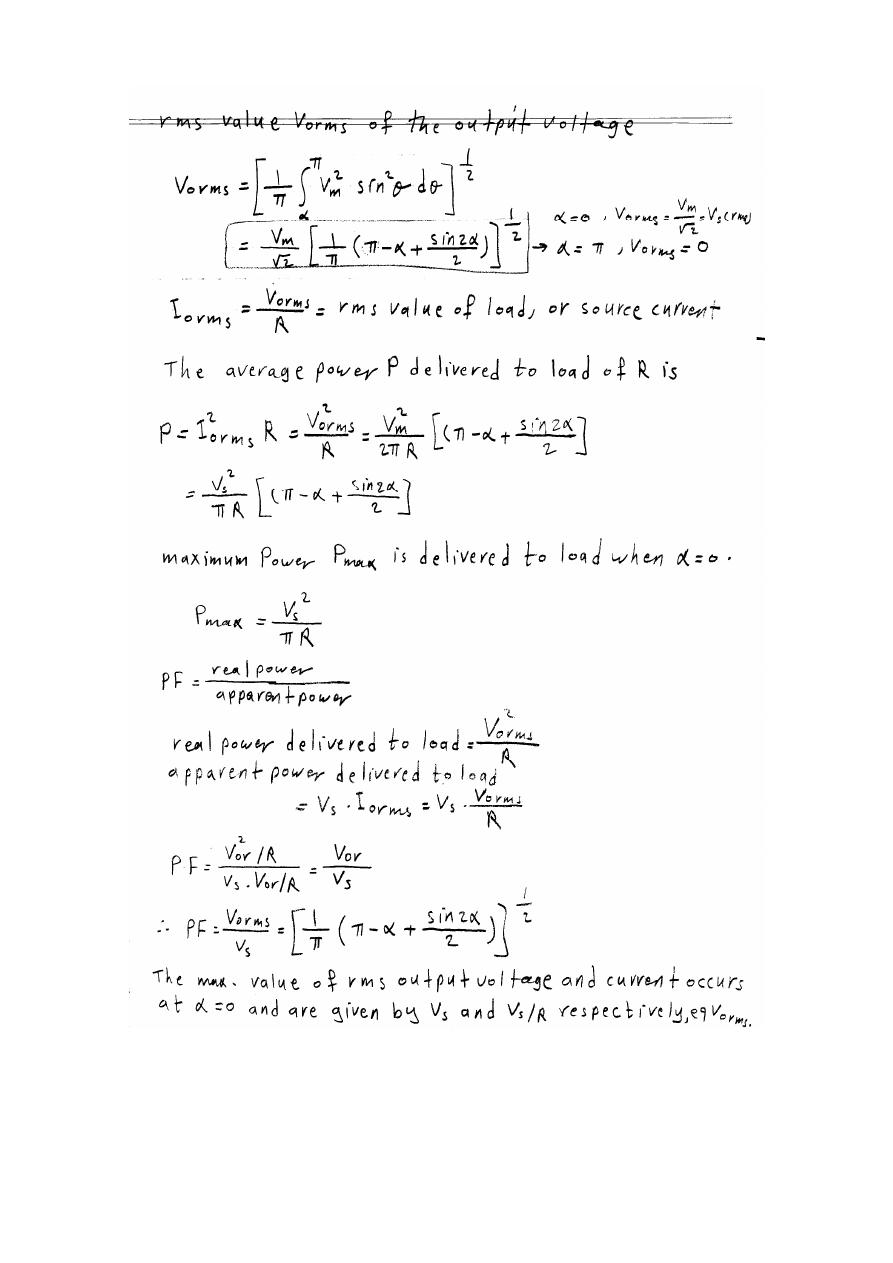 rms value Vorms of the output voltage
Vorms = [ 1/π ∫α^π Vm² sin²θ dθ ]^1/2
= Vm/√2 [ 1/π (π-α + sin2α/2) ]^1/2 → α=0 , Vorms = Vm/√2 = Vs(rms)
α = π , Vorms = 0
Iorms = Vorms/R = rms value of load, or source current
The average power P delivered to load of R is
P = I²orms R = V²orms/R = Vm²/2πR [(π-α + sin2α/2]
= Vs²/πR [(π-α + sin2α/2]
maximum Power Pmax is delivered to load when α=0.
Pmax = Vs²/πR
PF = real power/apparent power
real power delivered to load = V²orms/R
apparent power delivered to load
= Vs . Iorms = Vs . Vorms/R
PF = V²or/R / Vs.Vor/R = Vor/Vs
∴ PF = Vorms/Vs = [ 1/π (π-α + sin2α/2) ]^1/2
The max. value of rms output voltage and current occurs
at α=0 and are given by Vs and Vs/R respectively, eq Vorms.